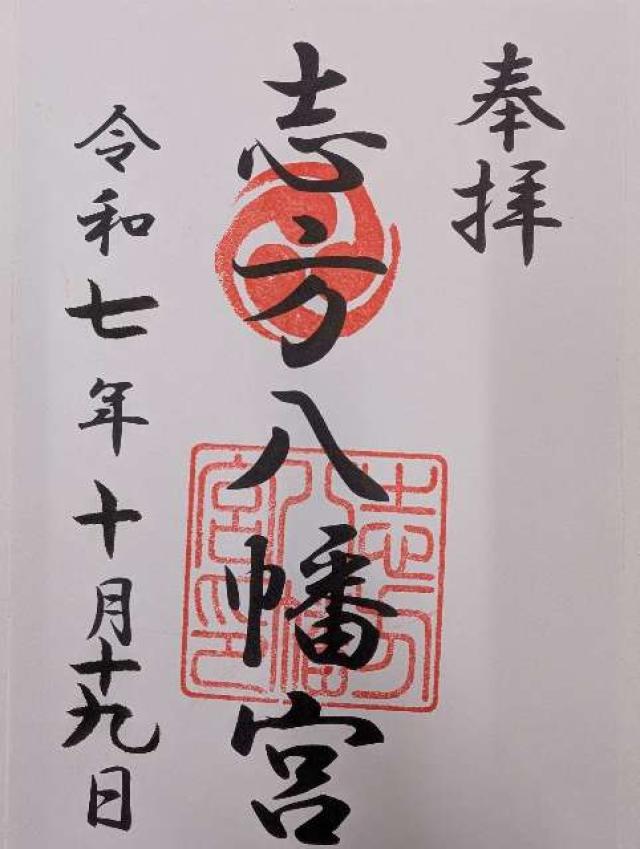 奉拝
志方八幡宮
志方八幡宮印
令和七年十月十九日